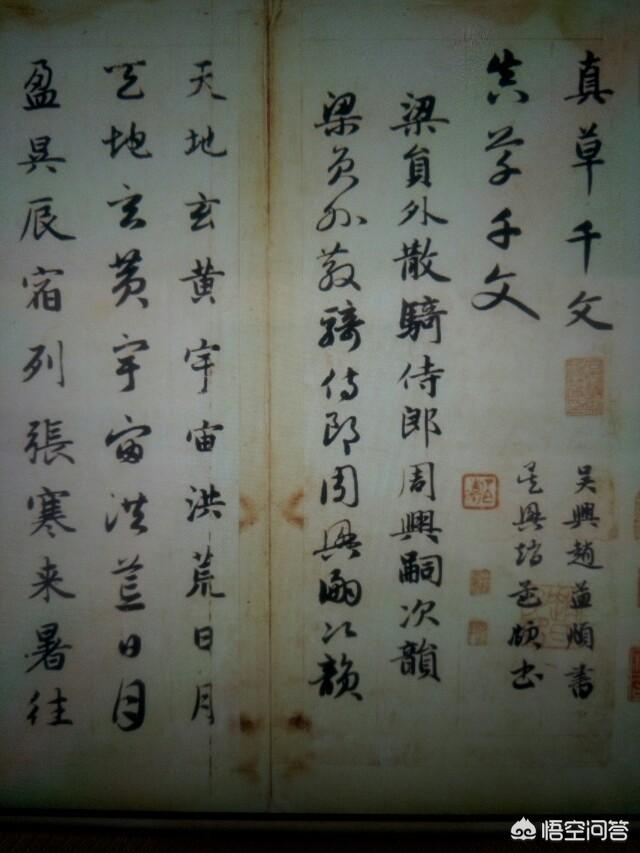 真草千文
真草千文
吴興趙孟頫書
吴興趙孟頫書
梁員外散騎侍郎周興嗣次韻
梁員外散騎侍郎周興嗣次韻
天地玄黄宇宙洪荒日月
天地玄黄宇宙洪荒日月
盈昃辰宿列張寒来暑往
悟空问答